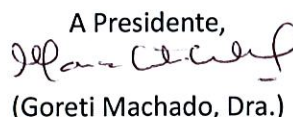 A Presidente,
(Goreti Machado, Dra.)